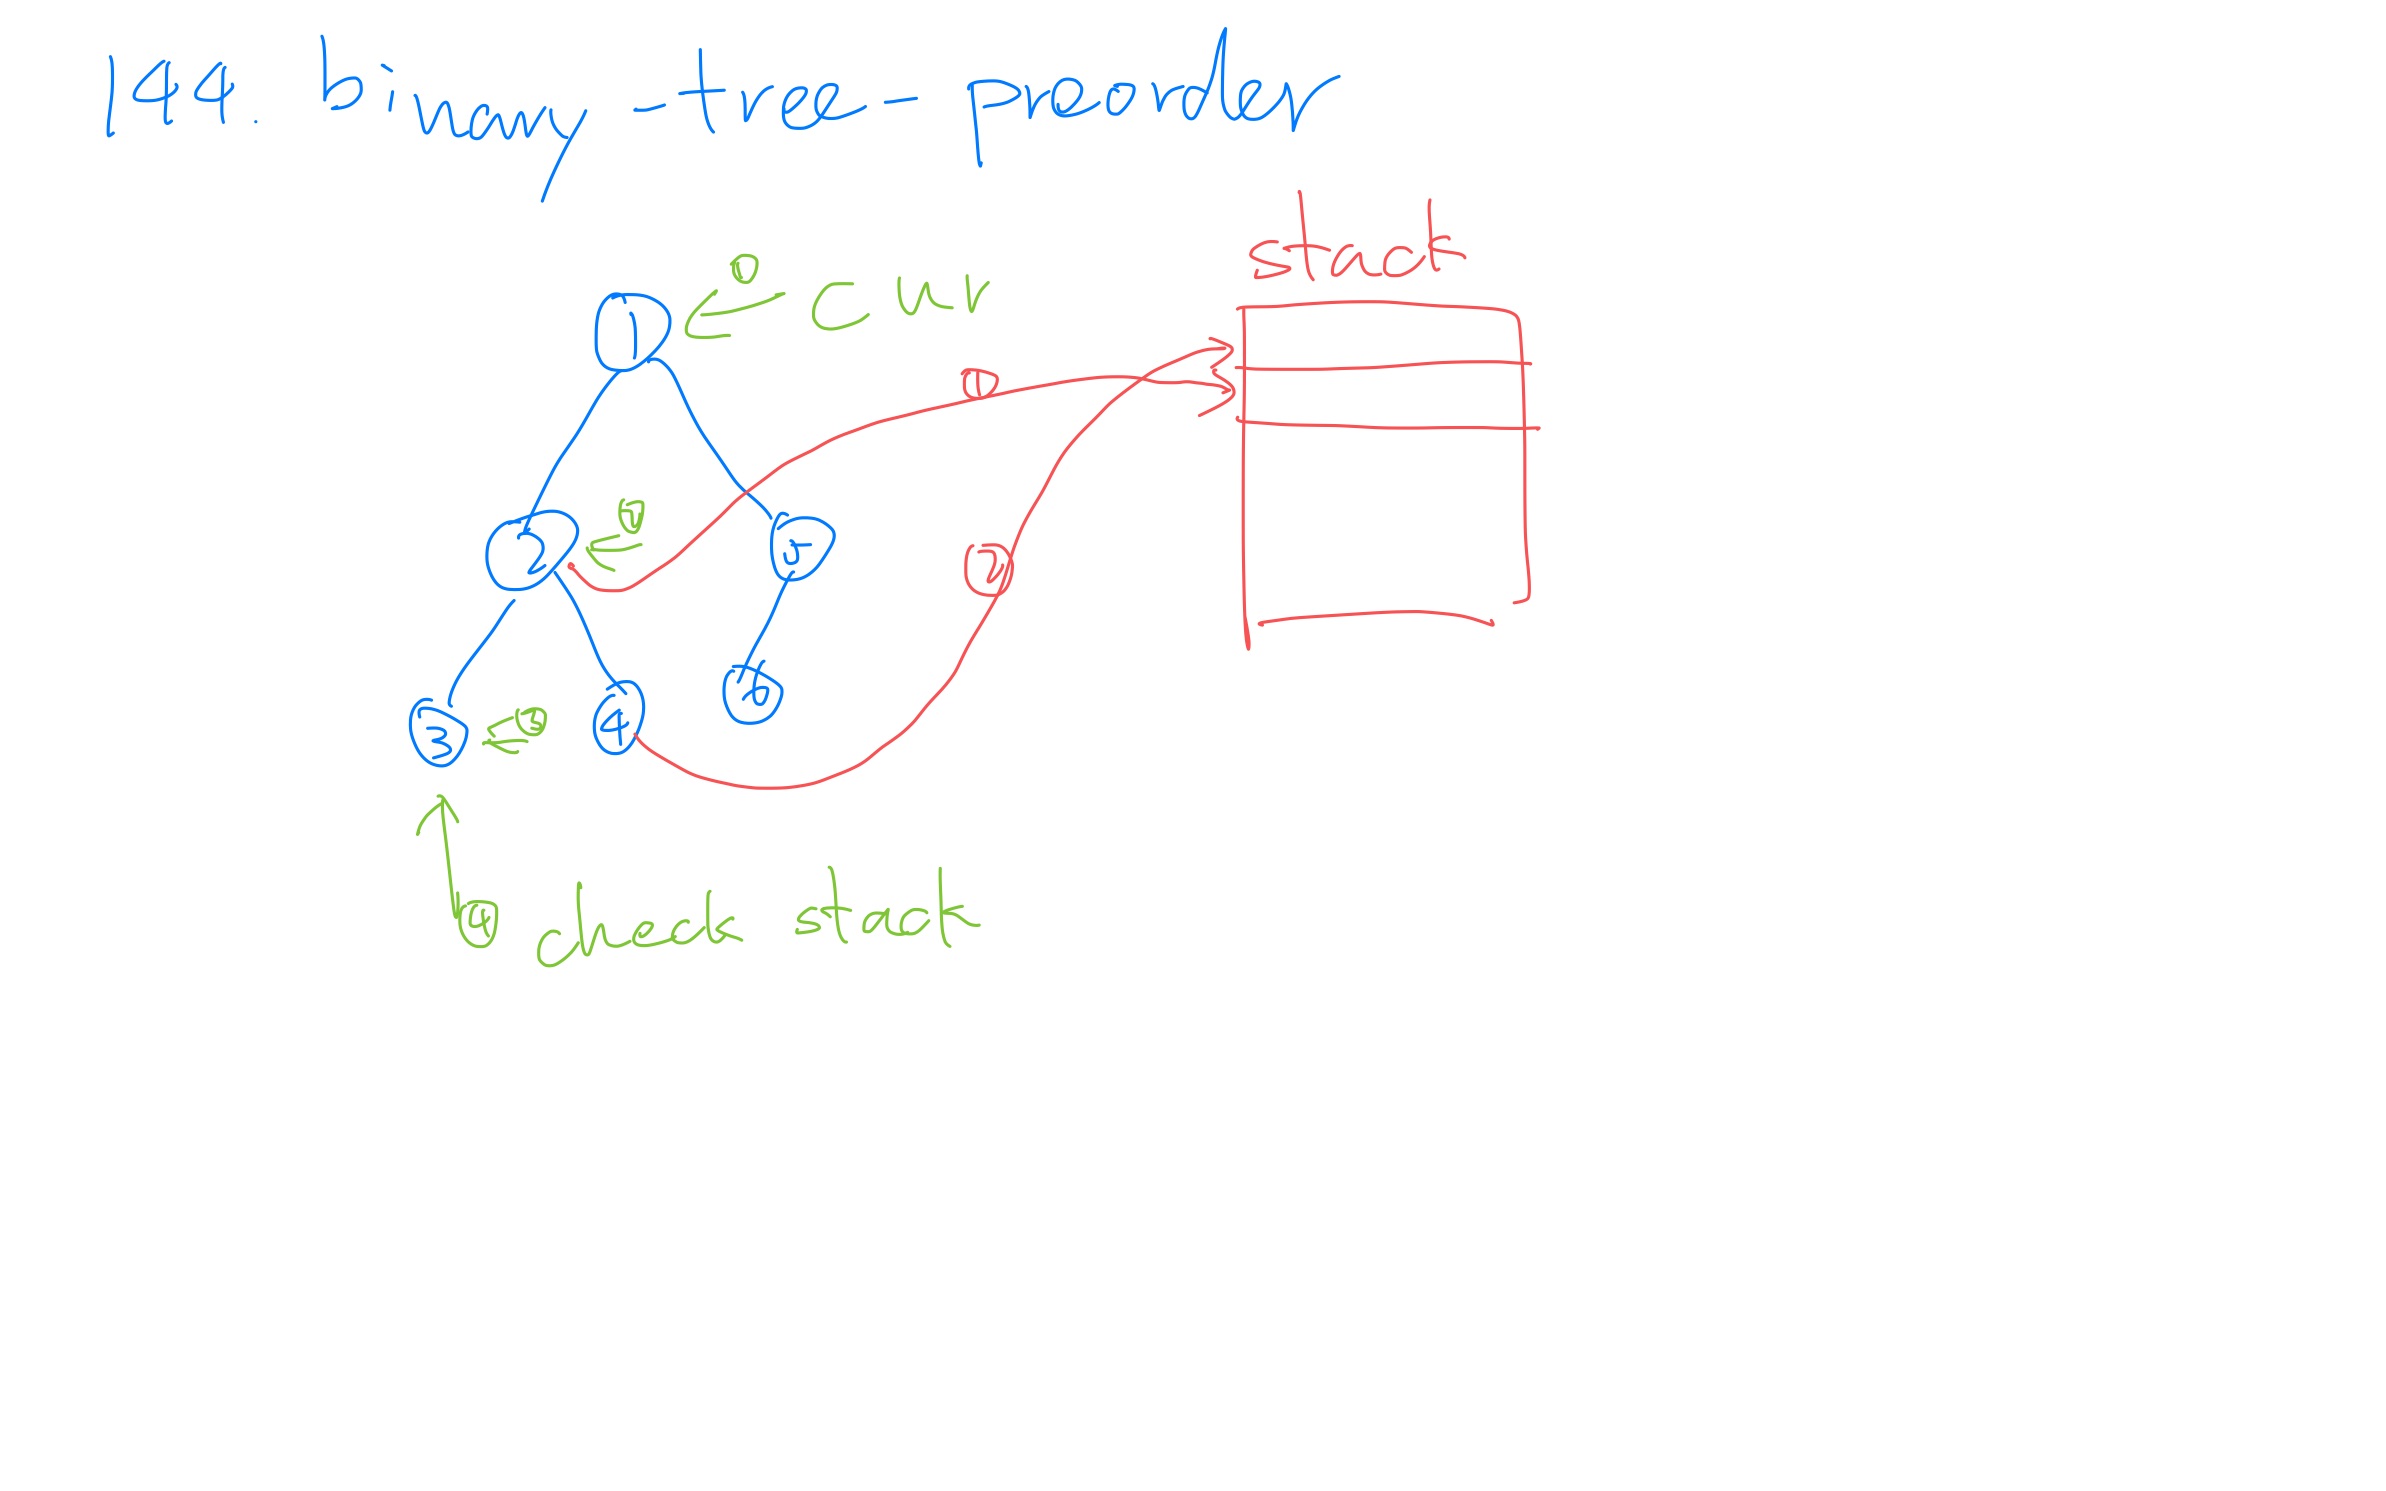 144. binary-tree-preorder
stack
① cur
1
①
② 
2
5
②
3
③
4
6
④ check stack